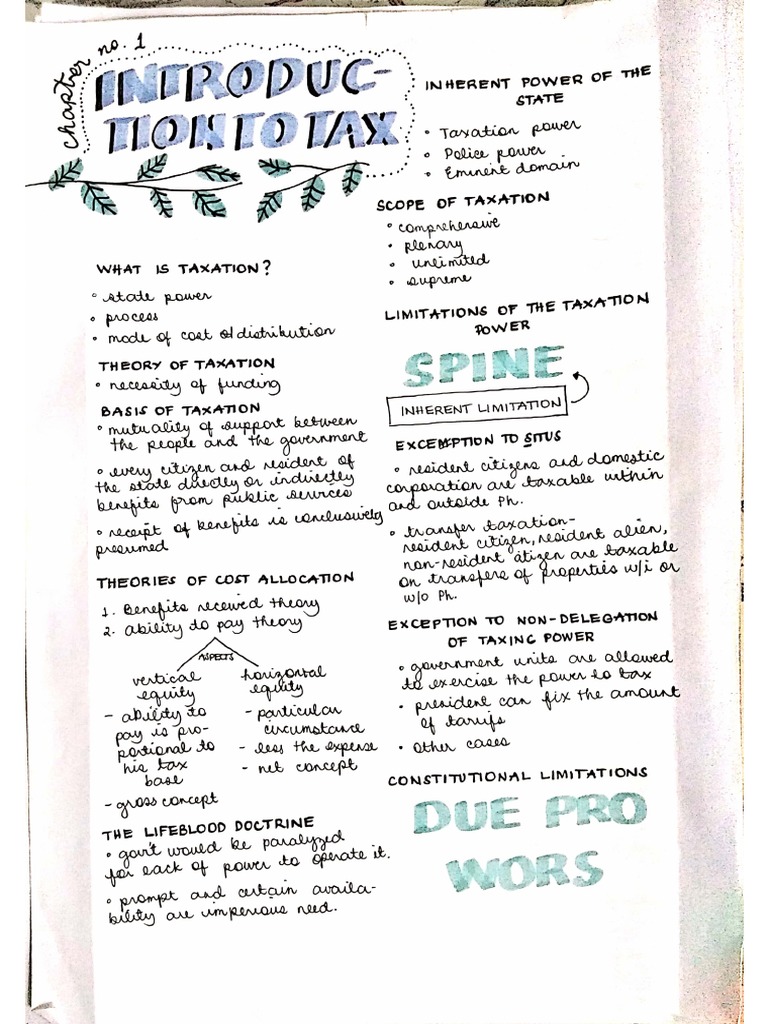 chapter no. 1
INTRODUC-
TION TO TAX
WHAT IS TAXATION?
• state power
• process
• mode of cost distribution
THEORY OF TAXATION
• necessity of funding
BASIS OF TAXATION
• mutuality of support between
the people and the government
• every citizen and resident of
the state directly or indirectly
benefits from public services
• receipt of benefits is conclusively
presumed
THEORIES OF COST ALLOCATION
1. Benefits received theory
2. ability to pay theory
ASPECTS
vertical
equity
- ability to
pay is pro-
portional to
his tax
base
- gross concept
horizontal
equity
- particular
circumstance
- less the expense
- net concept
THE LIFEBLOOD DOCTRINE
• gov't would be paralyzed
for lack of power to operate it.
• prompt and certain availa-
bility are imperious need.
INHERENT POWER OF THE
STATE
• Taxation power
• Police power
• Eminent domain
SCOPE OF TAXATION
• comprehensive
• plenary
• unlimited
• supreme
LIMITATIONS OF THE TAXATION
POWER
SPINE
INHERENT LIMITATION
EXCEMPTION TO SITUS
• resident citizens and domestic
corporation are taxable within
and outside Ph.
• transfer taxation-
resident citizen, resident alien,
non-resident citizen are taxable
on transfers of properties w/i or
w/o Ph.
EXCEPTION TO NON-DELEGATION
OF TAXING POWER
• government units are allowed
to exercise the power to tax
• president can fix the amount
of tarifs
• Other cases
CONSTITUTIONAL LIMITATIONS
DUE PRO
WORS